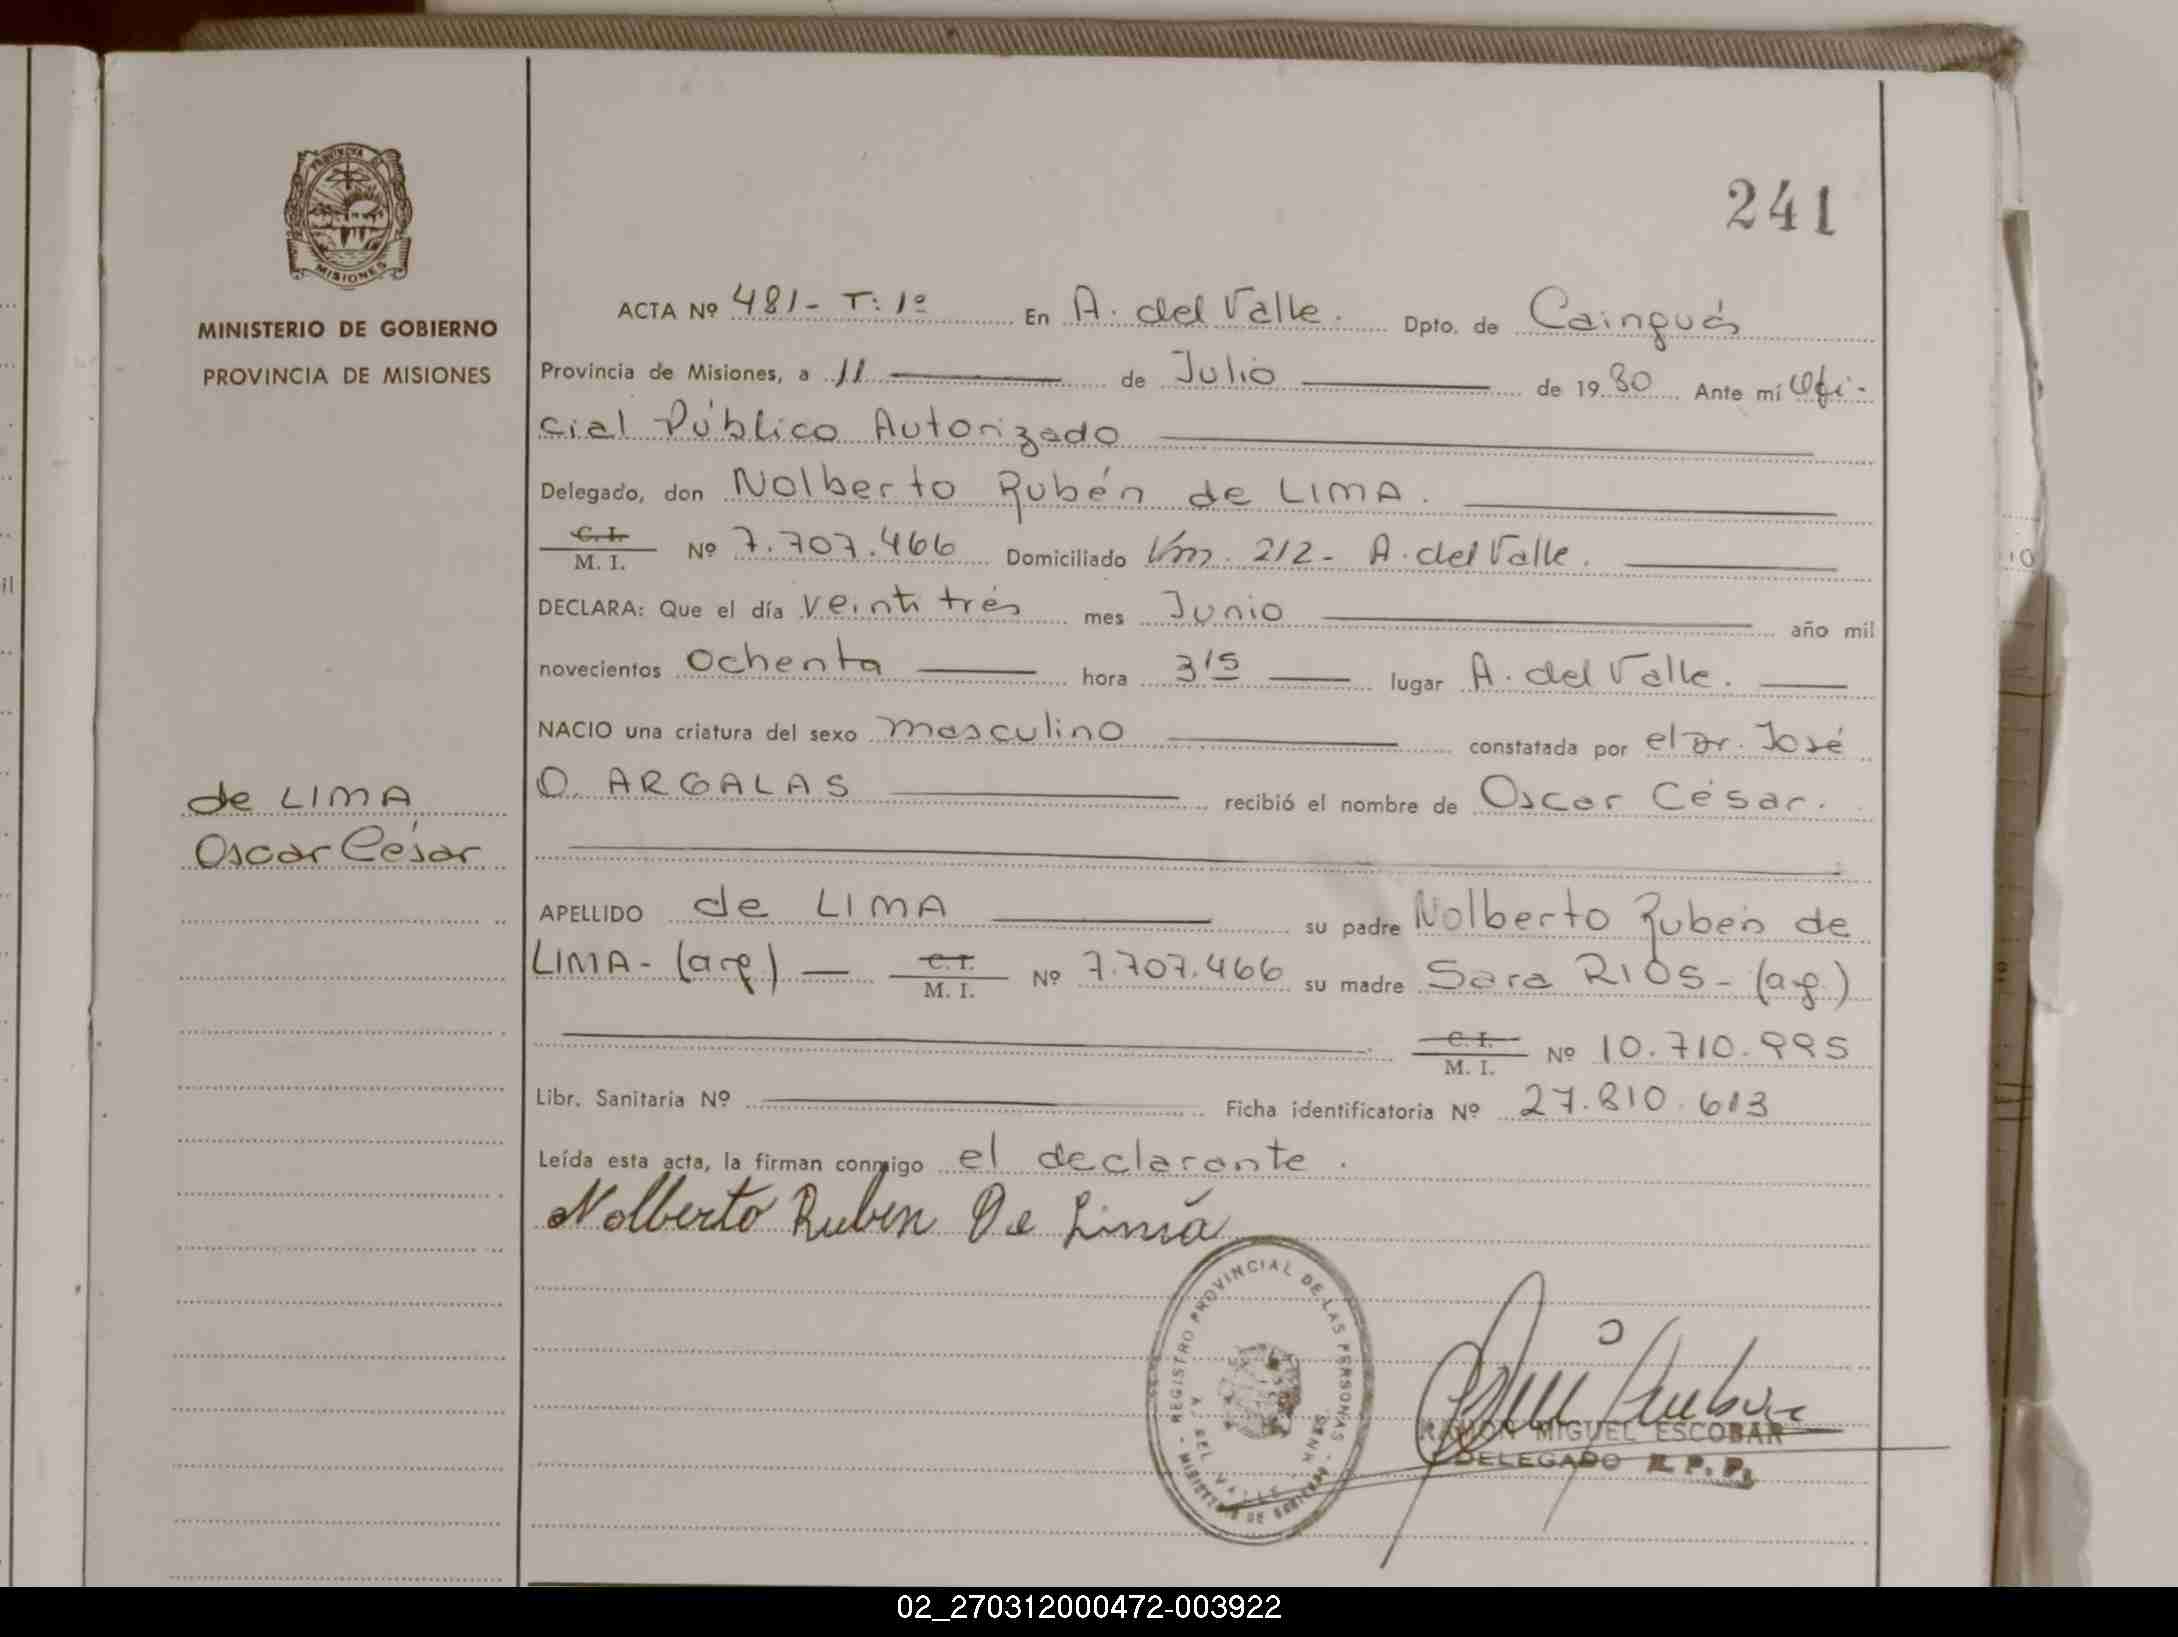 PROVINCIA DE
MISIONES
MINISTERIO DE GOBIERNO
PROVINCIA DE MISIONES
241
ACTA Nº 481- T: 1º En A. del Valle. Dpto. de Cainguás
Provincia de Misiones, a 11 de Julio de 1980 Ante mí Ofi-
cial Público Autorizado
Delegado, don Nolberto Rubén de LIMA.
C. I.
M. I. Nº 7.707.466 Domiciliado Km. 212- A. del Valle.
DECLARA: Que el día veinti trés mes Junio año mil
novecientos ochenta hora 3 15 lugar A. del Valle.
NACIO una criatura del sexo masculino constatada por el Dr. José
O. ARGALAS recibió el nombre de Oscar César.
de LIMA
Oscar César
APELLIDO de LIMA su padre Nolberto Rubén de
LIMA- (arg) C. I.
M. I. Nº 7.707.466 su madre Sara RIOS- (arg.)
C. I.
M. I. Nº 10.710.995
Libr. Sanitaria Nº Ficha identificatoria Nº 27.810.613
Leída esta acta, la firman conmigo el declarante.
Nolberto Ruben De Lima
REGISTRO PROVINCIAL DE LAS PERSONAS
A. DEL VALLE
MINISTERIO DE GOBIERNO
RAMON MIGUEL ESCOBAR
DELEGADO R. P. P.
02_270312000472-003922